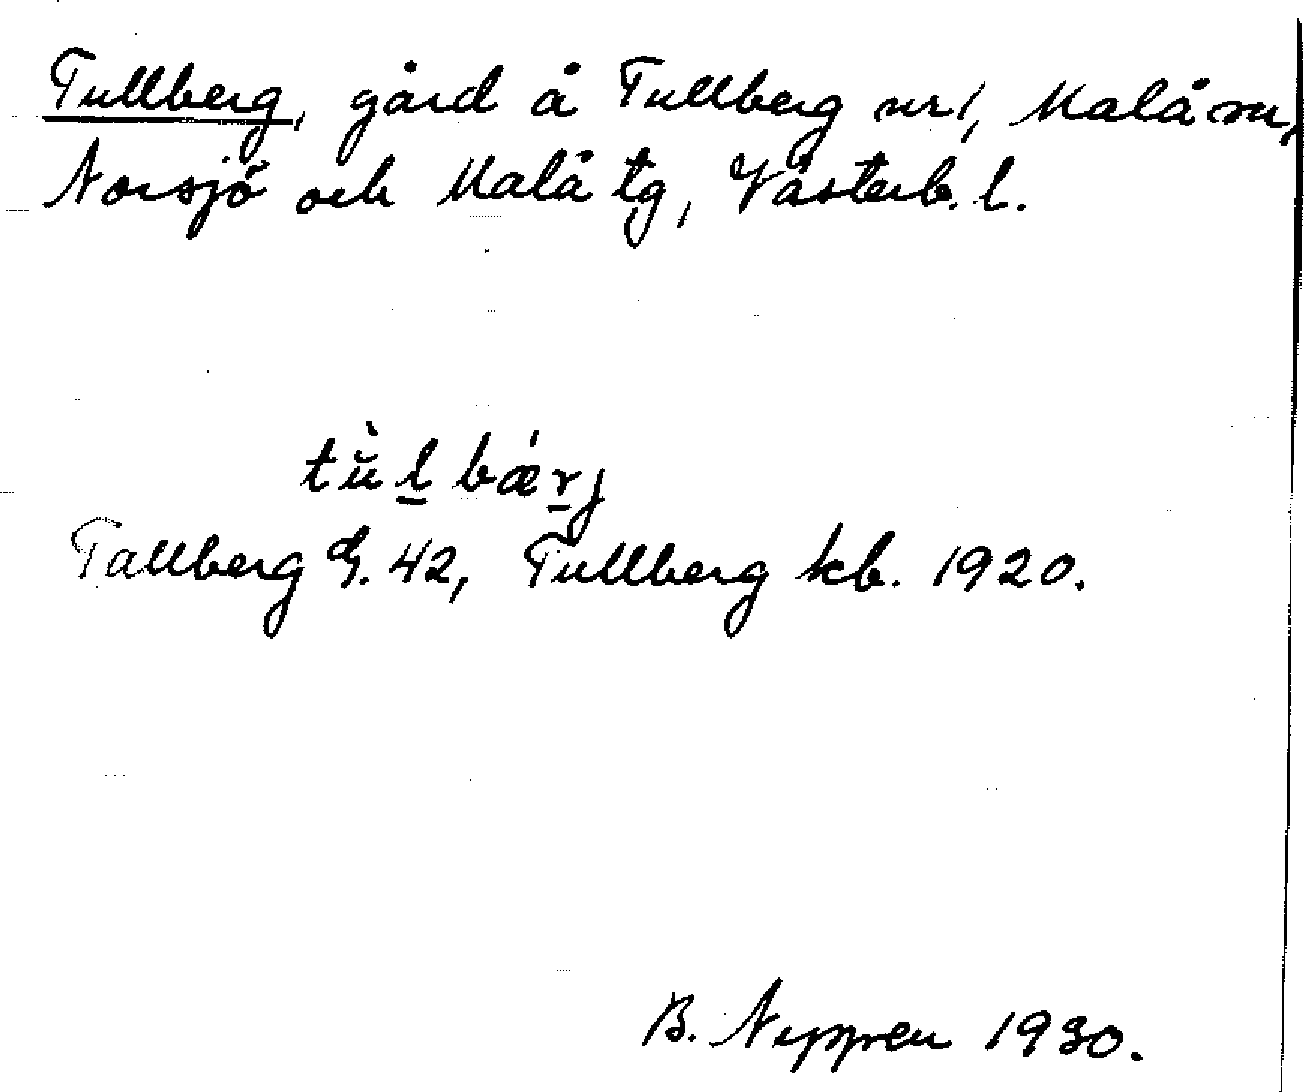 Tullberg, gård å Tullberg nr 1, Malå sn,
Norsjö och Malå tg, Västerb. l.
tùl bǽrj
Tallberg G. 42, Tullberg kb. 1920.
B. 1930.